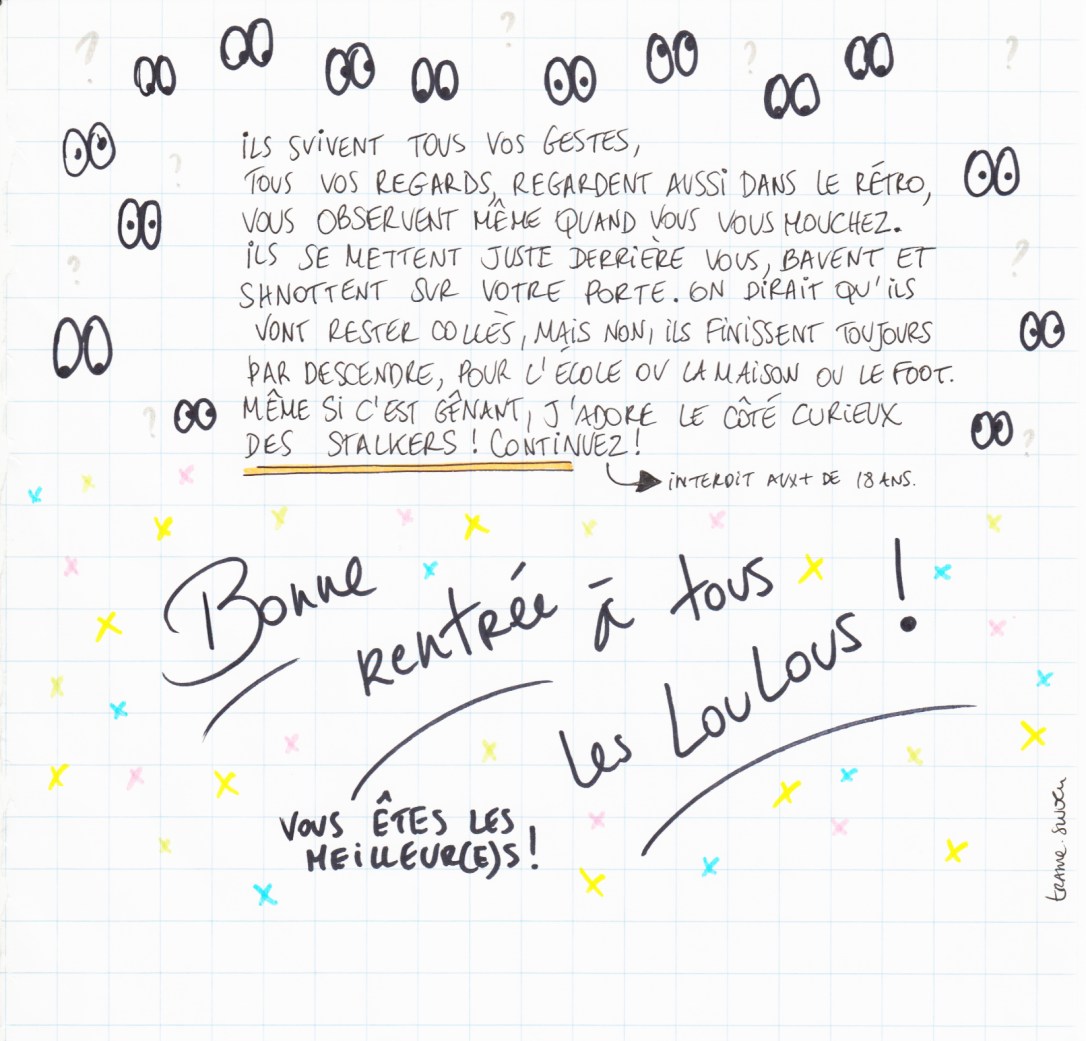 ILS SUIVENT TOUS VOS GESTES,
TOUS VOS REGARDS, REGARDENT AUSSI DANS LE RÉTRO,
VOUS OBSERVENT MÊME QUAND VOUS VOUS MOUCHEZ.
ILS SE METTENT JUSTE DERRIÈRE VOUS, BAVENT ET
SHNOTTENT SUR VOTRE PORTE. ON DIRAIT QU'ILS
VONT RESTER COLLÉS, MAIS NON, ILS FINISSENT TOUJOURS
PAR DESCENDRE, POUR L'ÉCOLE OU LA MAISON OU LE FOOT.
MÊME SI C'EST GÊNANT, J'ADORE LE CÔTÉ CURIEUX
DES STALKERS ! CONTINUEZ !
INTERDIT AUX + DE 18 ANS.
Bonne
rentrée à tous
les Loulous !
VOUS ÊTES LES
MEILLEUR(E)S !
trame.swoen